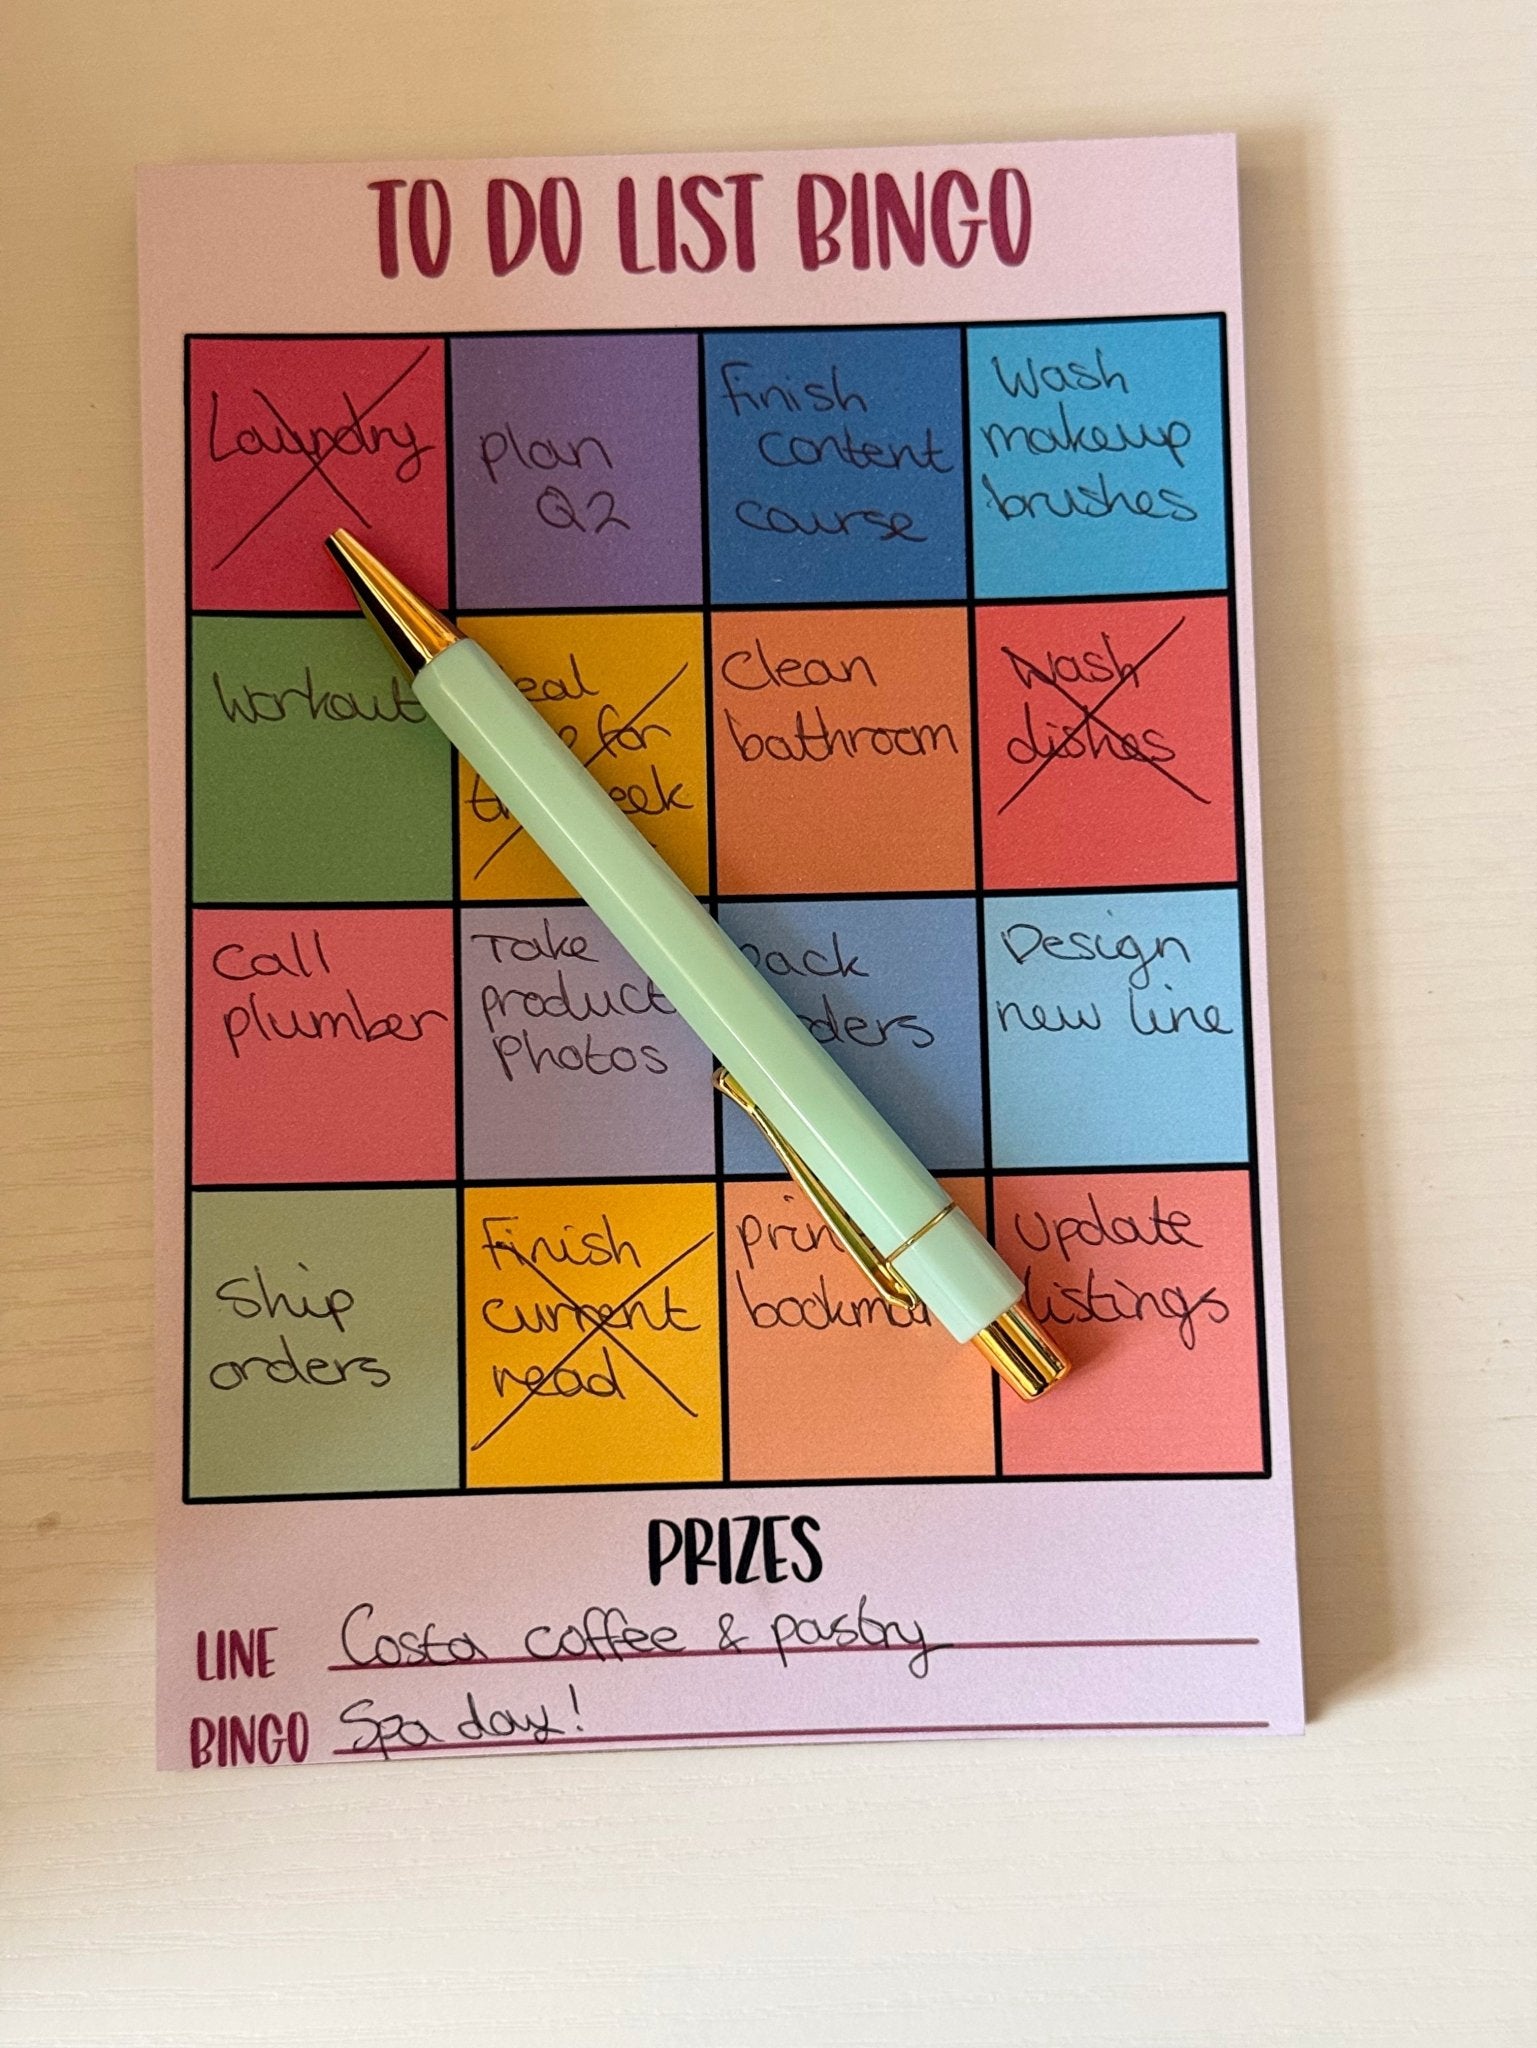 TO DO LIST BINGO
Laundry
plan
Q2
Finish
content
course
Wash
makeup
brushes
Workout
Meal
for
the week
Clean
bathroom
Wash
dishes
Call
plumber
Take
product
photos
Pack
orders
Design
new line
Ship
orders
Finish
current
read
print
Update
listings
PRIZES
LINE Costa coffee & pastry
BINGO Spa day!